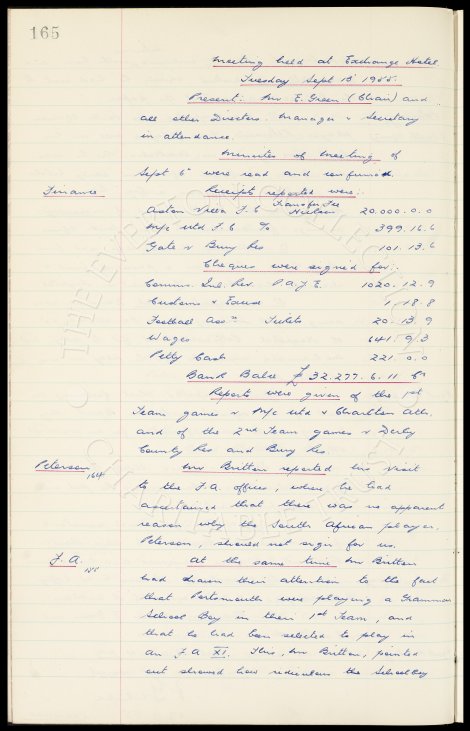 165
Meeting held at Exchange Hotel
Tuesday Sept 13 1955.
Present: Mr E. Green (Chair) and
all other Directors. Manager & Secretary
in attendance.
Minutes of Meeting of
Sept 6th were read and confirmed.
Finance
Receipts reported were:
Aston Villa F.C Transfer Fee 20.000.0.0
M/c Utd F.C % 399.16.6
Gate v Bury Res 101.13.6
Cheques were signed for:
Comms. Inl. Rev. P.A.Y.E. 1020.12.9
Customs & Excise 1.18.8
Football Assn Tickets 20.13.9
Wages 641.9.3
Petty Cash 221.0.0
Bank Balce £32.277.6.11 Cr
Reports were given of the 1st
Team games v M/c Utd & Charlton Ath.
and of the 2nd Team games v Derby
County Res and Bury Res.
Peterson 164
Mr Britton reported his visit
to the F.A. offices, where he had
ascertained that there was no apparent
reason why the South African player,
Peterson, should not sign for us.
F.A.
At the same time Mr Britton
had drawn their attention to the fact
that Portsmouth were playing a Grammar
School Boy in their 1st Team, and
that he had been selected to play in
an F.A XI. This, Mr Britton, pointed
out showed how rediculous the Schoolboy
THE EVERTON COLLECTION
CHARITABLE TRUST